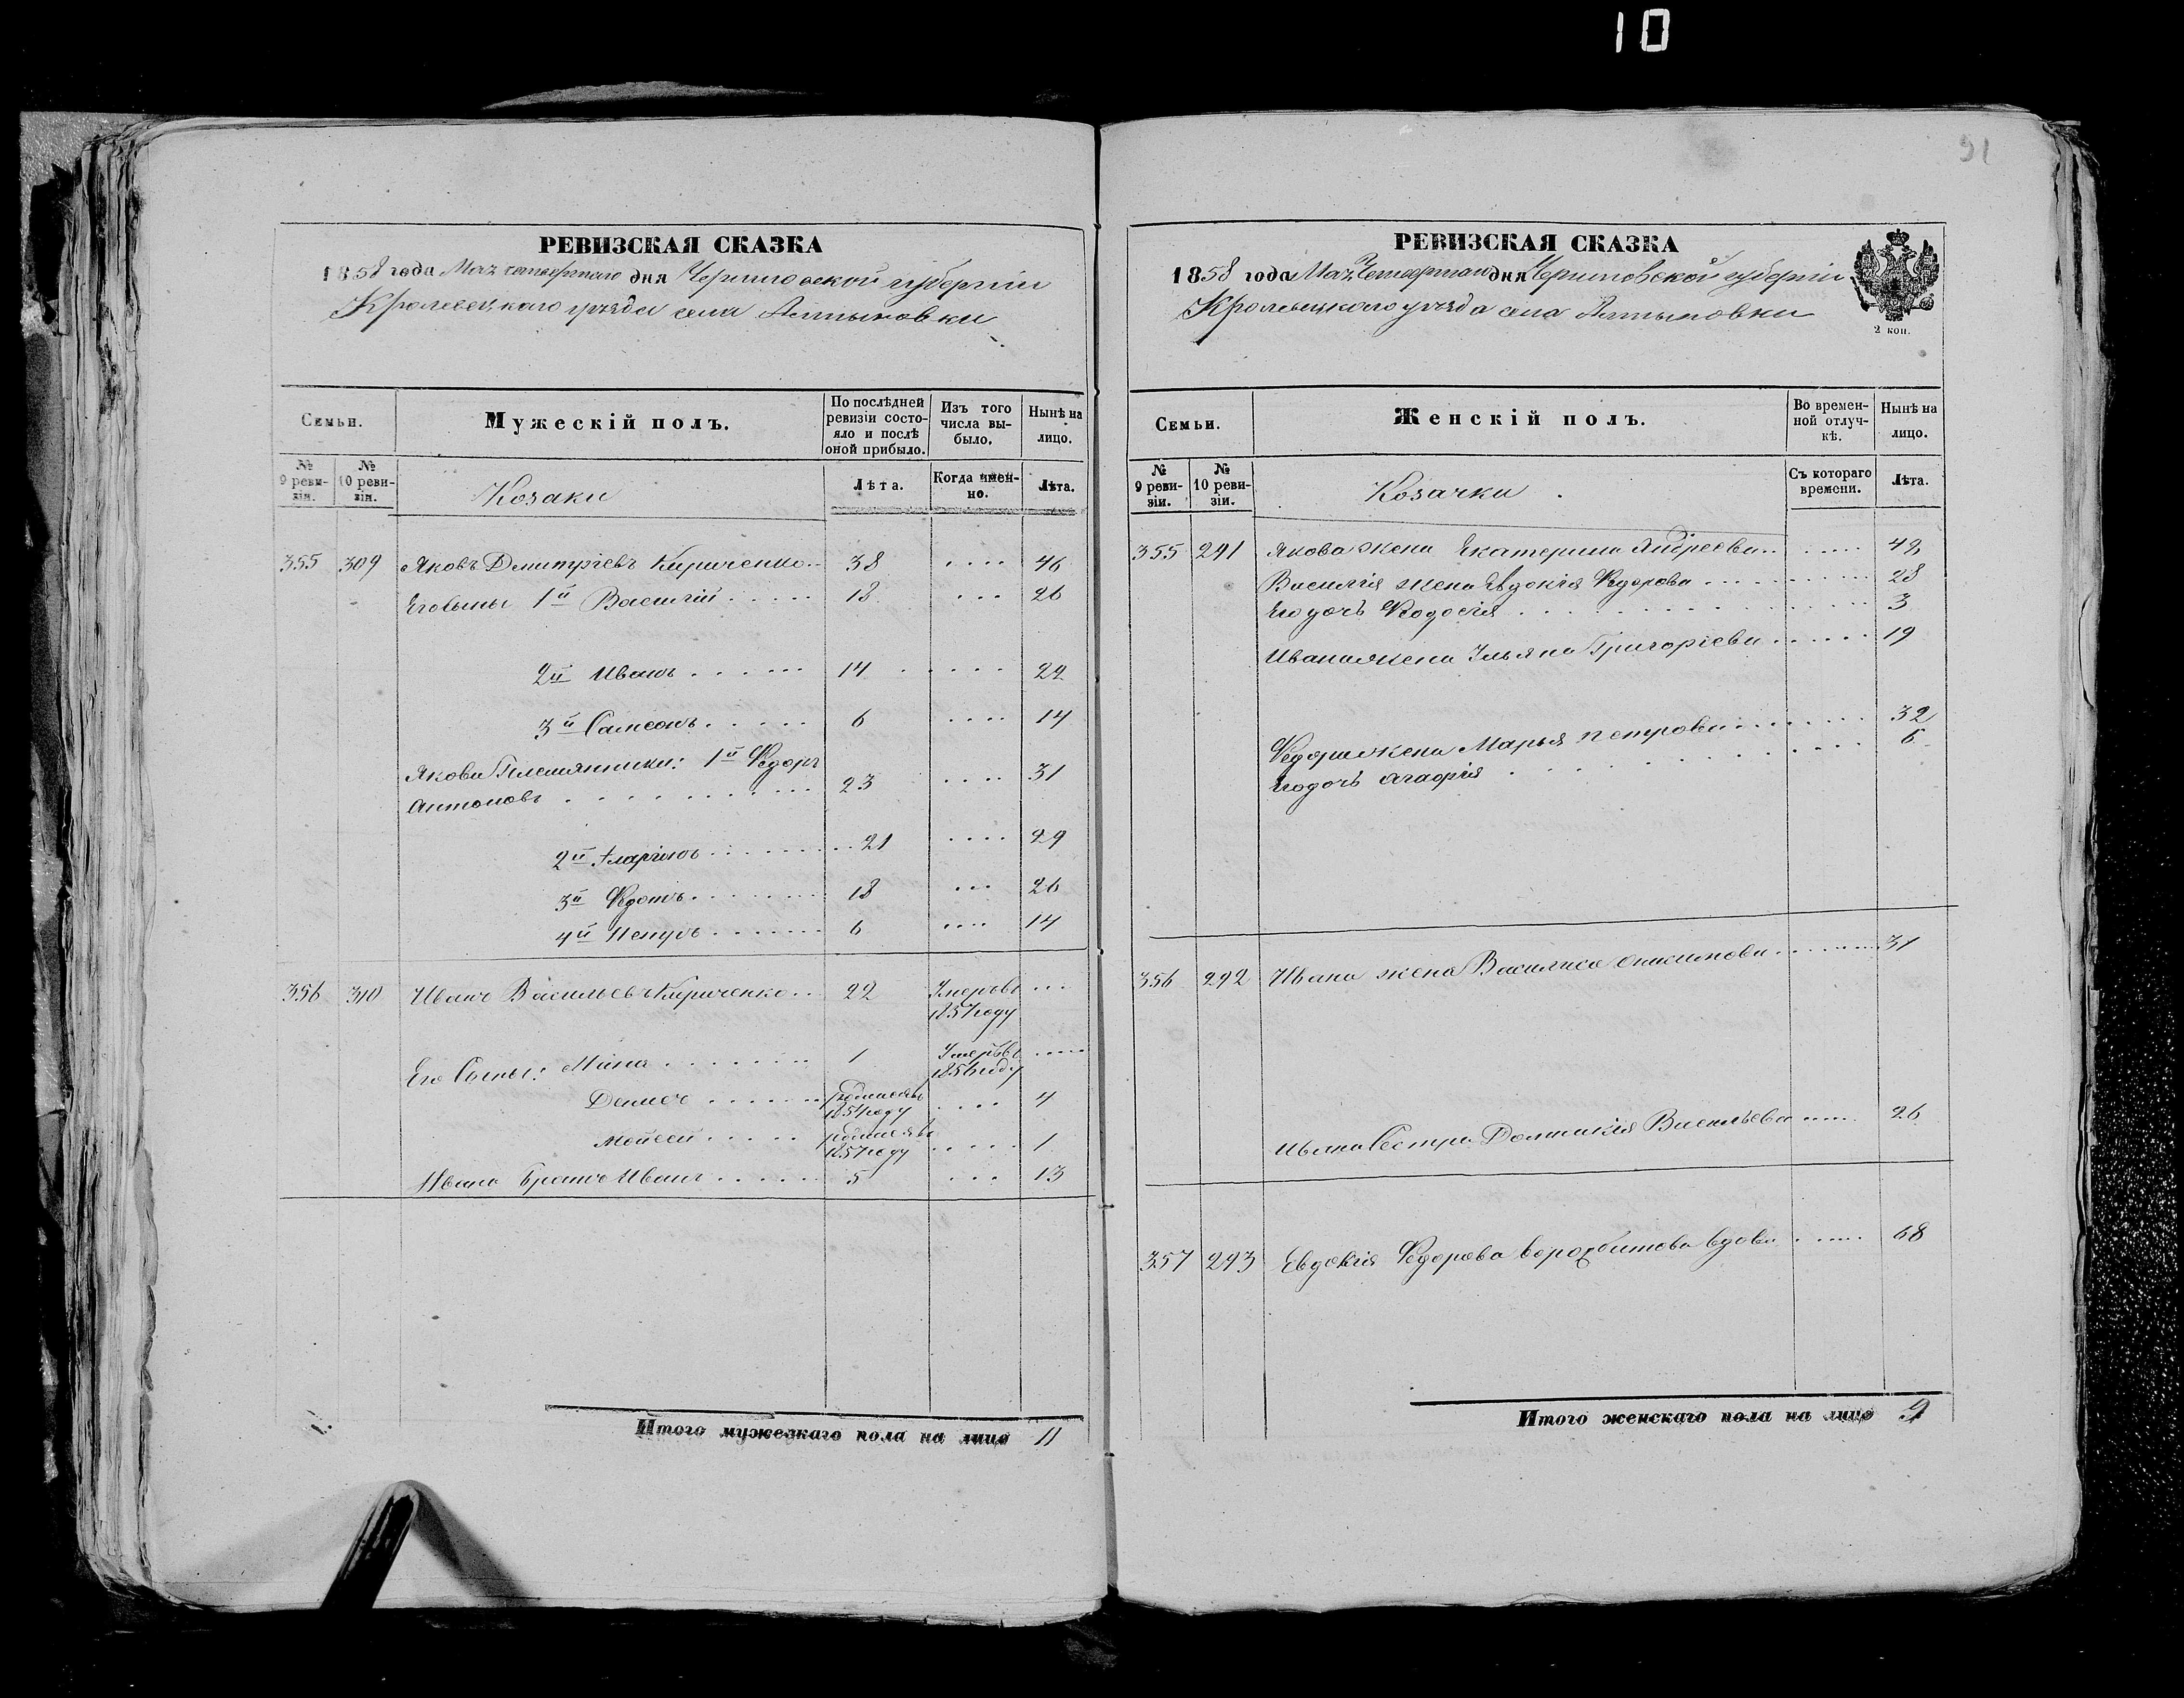 10
РЕВИЗСКАЯ СКАЗКА
1858 года Мая четвертаго дня Черниговской губернии
Кролевецкаго уезда села Алтыновки
Семьи.
Мужескій полъ.
По послѣдней ревизіи состо-
яло и послѣ оной прибыло.
Изъ того числа вы-
было.
Нынѣ на лицо.
№ 9 реви-
зіи.
№ 10 реви-
зіи.
Козаки
Лѣта.
Когда имен-
но.
Лѣта.
355 309 Яковъ Дмитріевъ Кириченко 38 46
Его сыны 1й Василій 18 26
2й Иванъ 14 22
3й Самсонъ 6 14
Якова Племянники: 1й Федоръ
Антоновъ 23 31
2й Иларіонъ 21 29
3й Федотъ 18 26
4й 6 14
356 310 Иванъ Васильевъ Кириченко 22 Умеръ въ
1857 году
Его Сыны: Мина 1 Умеръ въ
1856 году
родился въ 4
1854 году
Мойсей родился въ 1
1857 году
Ивана братъ Иванъ 5 13
Итого мужезкаго пола на лицо 11
91
РЕВИЗСКАЯ СКАЗКА
1858 года Мая Четвертаго дня Черниговской губерніи
Кролевецкаго уезда села Алтыновки
2 коп.
Семьи.
Женскій полъ.
Во времен-
ной отлуч-
кѣ.
Нынѣ на лицо.
№ 9 реви-
зіи.
№ 10 реви-
зіи.
Козачки
Съ котораго времени.
Лѣта.
355 291 Якова жена Екатерина Андреева 48
Василія жена Евдокія Федорова 28
Его дочь Феодосія 3
Ивана жена Ульяна Григоріева 19
Федора жена Марья Петрова 32
Его дочь Агафія 6
356 292 Ивана жена Василиса Онисимова 31
Ивана Сестра Домникія Васильева 26
357 293 Евдокія Федорова Ворохбитова вдова 68
Итого женскаго пола на лицо 9